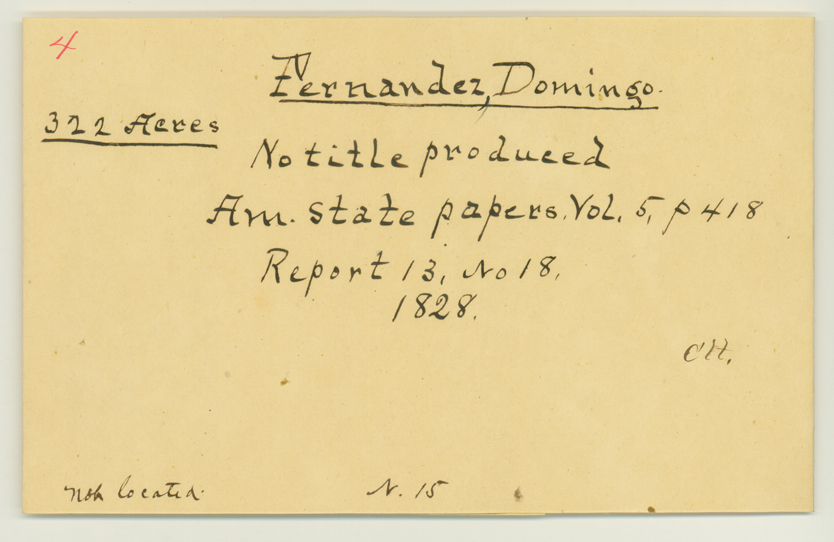 4
Fernandez, Domingo.
322 Acres
No title produced
Am. state papers. Vol. 5, p 418
Report 13, No 18.
1828.
CH.
Not located.
N. 15